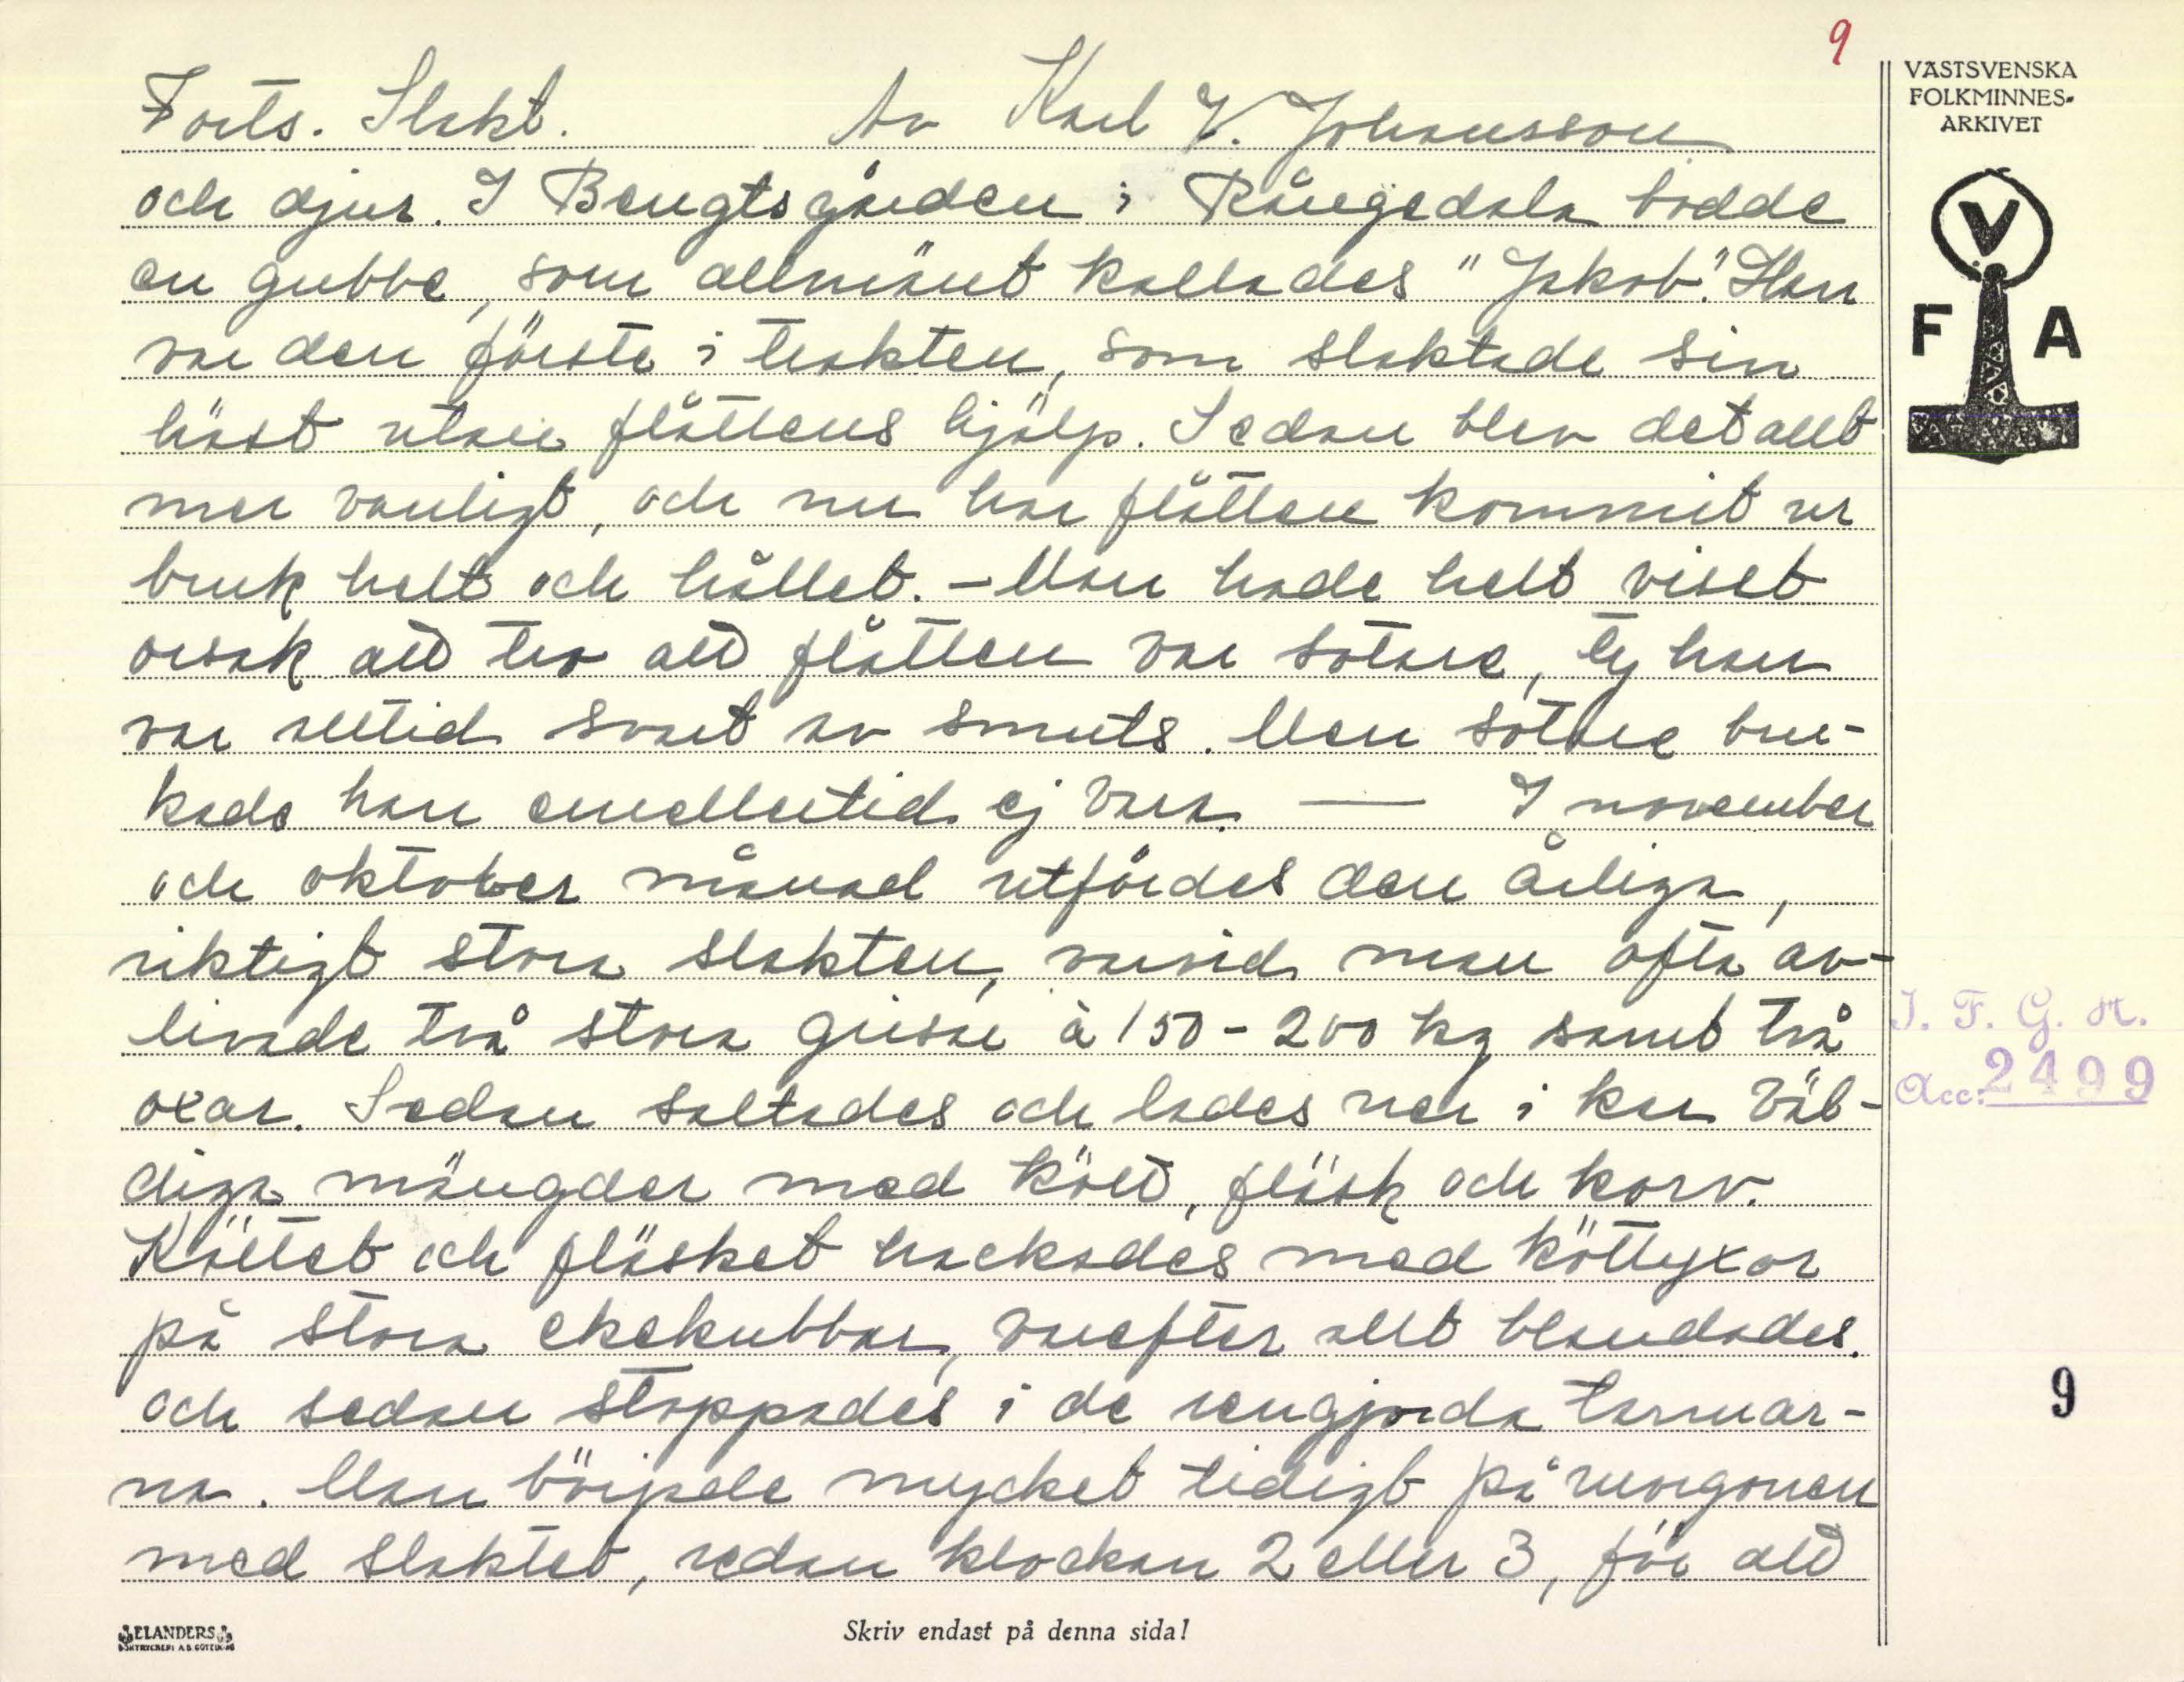 9
Forts. Slakt. Av Karl V. Johansson
och djur. I Bengtsgården i Rångedala bodde
en gubbe, som allmänt kallades "Jakob". Han
var den förste i trakten, som slaktade sin
häst utan flåttens hjälp. Sedan blev det allt
mer vanligt, och nu har flåtten kommit ur
bruk helt och hållet. - Man hade helt visst
orsak att tro att flåtten var sotare, ty han
var alltid svart av smuts. Men sotare bru-
kade han emellertid ej vara. — I november
och oktober månad utfördes den årliga,
riktigt stora slakten, varvid man ofta av-
livade två stora grisar à 150-200 kg samt två
oxar. Sedan saltades och lades ner i kar väl-
diga mängder med kött, fläsk och korv.
Köttet och fläsket hackades med köttyxor
på stora ekekubbar, varefter allt blandades.
och sedan stoppades i de rengjorda tarmar-
na. Man började mycket tidigt på morgonen
med slaktet, redan klockan 2 eller 3, för att
VÄSTSVENSKA
FOLKMINNES-
ARKIVET
V
F A
I. F. G. H.
Acc: 2499
9
ELANDERS
BOKTRYCKERI A.B. GÖTEBORG
Skriv endast på denna sida!